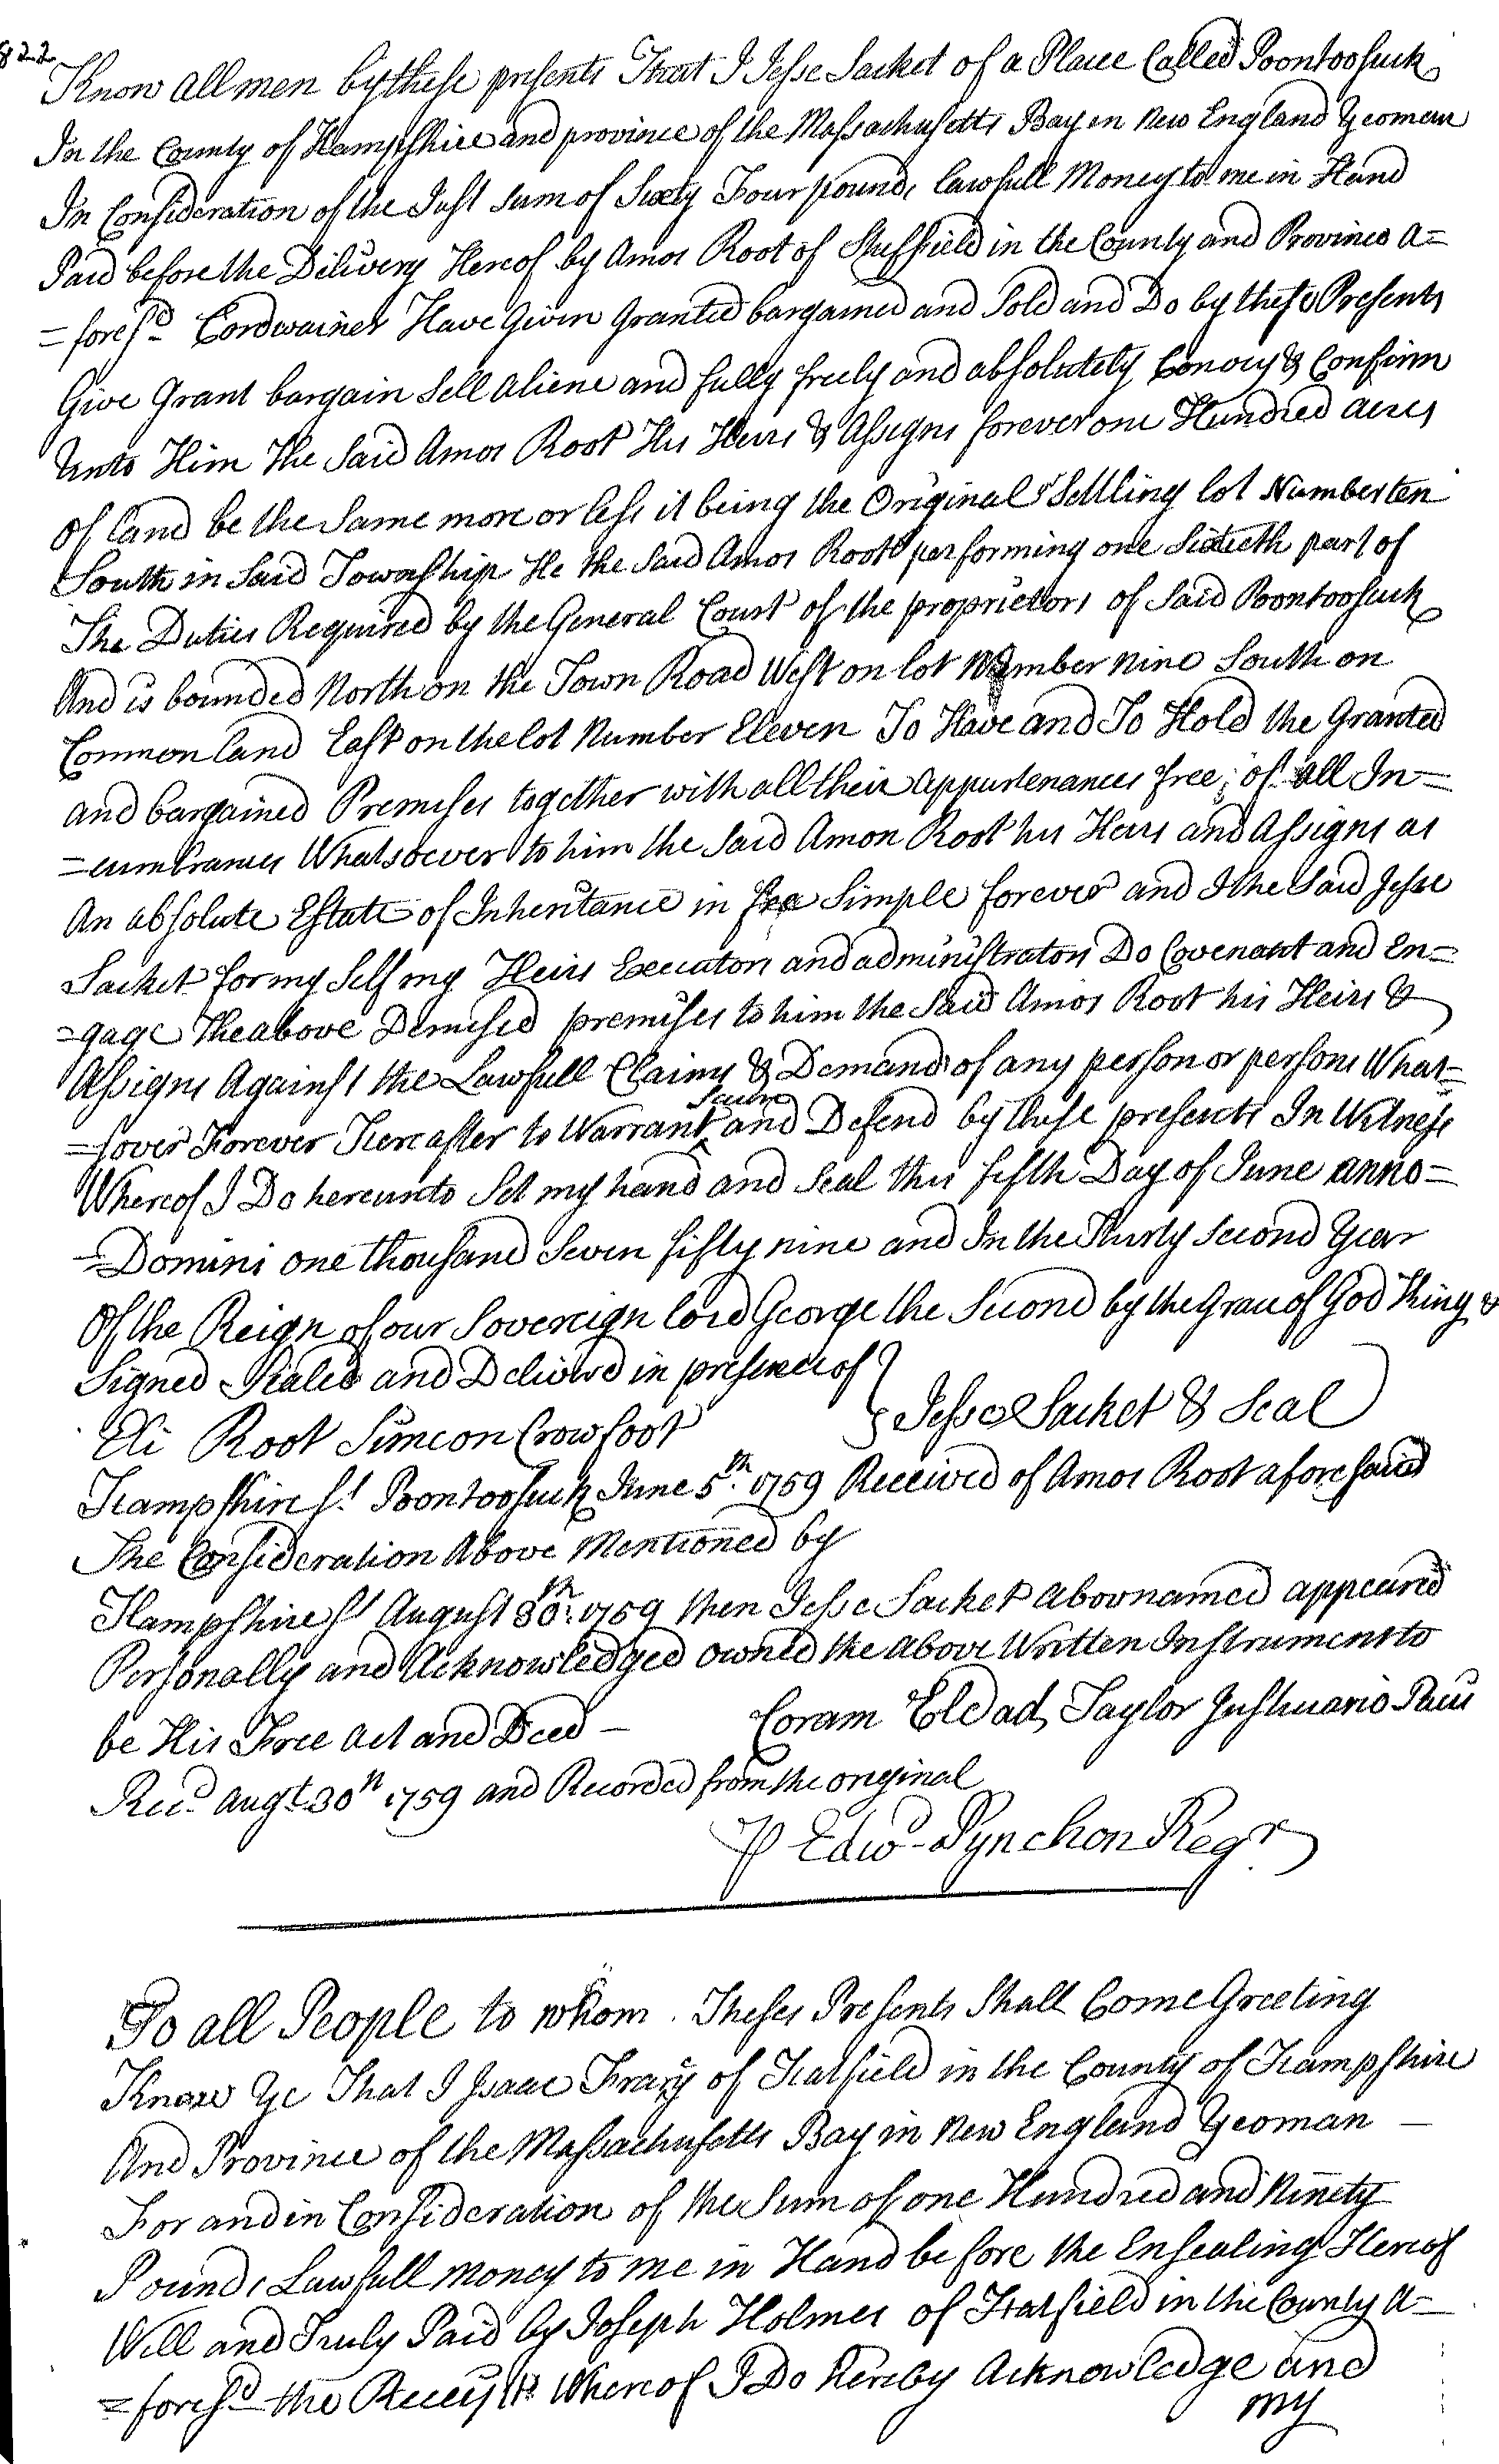 822
Know all men by these presents That I Jesse Sacket of a Place Called Poontoosuck
In the County of Hampshire and province of the Massachusetts Bay in New England Yeoman
In Consideration of the Just sum of Sixty Four pounds Lawfull Money to me in Hand
Paid before the Dilivery Hereof by Amos Root of Sheffield in the County and Province a=
=fores.d Cordwainer Have Given Granted bargained and Sold and Do by these Presents
Give Grant bargain Sell aliene and fully freely and absolutely Convey & Confirm
Unto Him The Said Amos Root His Heirs & Assigns forever one Hundred acres
of Land be the Same more or less it being the Original Settling lot Number ten
South in Said Township He the Said Amos Root performing one Sixtieth part of
The Duties Required by the General Court of the proprietors of Said Poontoosuck
And is bounded North on the Town Road West on lot Number nine South on
Common Land East on the lot Number Eleven To Have and To Hold the Granted
and bargained Premises together with all their appurtenances free of all In=
=cumbrances Whatsoever to him the Said Amon Root his Heirs and Assigns as
An absolute Estate of Inheritance in Fee Simple forever and I the Said Jesse
Sacket for my Self my Heirs Executors and administrators Do Covenant and En=
=gage The above Demised premises to him the Said Amos Root his Heirs &
Assigns Against the Lawfull Claims & Demands of any person or persons What=
=sover Forever Hereafter to Warrant Secure and Defend by these presents In Witness
Whereof I Do hereunto Set my hand and Seal this fifth Day of June anno=
=Domini one thousand Seven fifty nine and In the Thirty Second Year
Of the Reign of our Sovereign Lord George the Second by the Grace of God King &
Signed Sealed and Deliverd in presence of
Eli Root Simeon Crowfoot } Jesse Sacket & Seal
Hampshire Ss Poontoosuck June 5.th 1759 Received of Amos Root aforesaid
The Consideration Above Mentioned by
Hampshire Ss August 30.th 1759 then Jesse Sacket abovnamed appeared
Personally and Acknowledged owned the above Written Instrument to
be His Free Act and Deed — Coram Eldad Taylor Justiciario Pacis
Rec.d Augt. 30th 1759 and Recorded from the original
P Edw.d Pynchon Regr
To all People to whom Theses Presents Shall Come Greeting
Know Ye That I Isaac Frary of Hatfield in the County of Hampshire
And Province of the Massachusetts Bay in New England Yeoman —
For and in Consideration of the Sum of one Hundred and Ninety
Pounds Lawfull money to me in Hand before the Ensealing Hereof
Will and Truly Paid by Joseph Holmes of Hatfield in the County a=
=fores.d the Receypt Whereof I Do hereby Acknowledge and
my